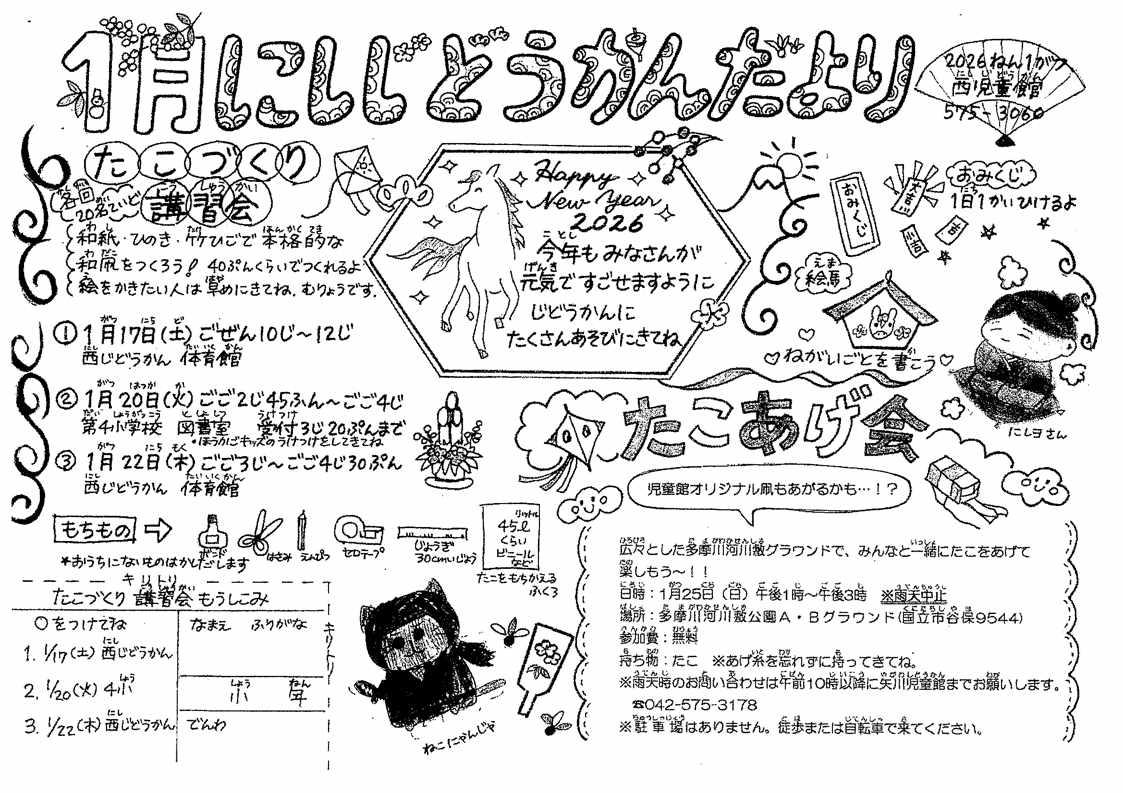 1月にしじどうかんだより
2026ねん1がつ
西児童館
575-3060
たこづくり
講習会
各回
20名ていど
和紙・ひのき・竹ひごで本格的な
和凧をつくろう! 40ぷんくらいでつくれるよ
絵をかきたい人は早めにきてね。むりょうです.
① 1月17日(土)ごぜん10じ〜12じ
西じどうかん 体育館
② 1月20日(火)ごご2じ45ふん〜ごご4じ
第4小学校 図書室 受付3じ20ぷんまで
*ほうかごキッズのうけつけをしてきてね
③ 1月22日(木)ごご3じ〜ごご4じ30ぷん
西じどうかん 体育館
もちもの
ボンド
はさみ
えんぴつ
セロテープ
じょうぎ
30cmいじょう
45ℓ
くらい
ビニール
など
たこをもちかえる
ふくろ
*おうちにないものはかしだします
Happy
New Year
2026
今年もみなさんが
元気ですごせますように
じどうかんに
たくさんあそびにきてね
おみくじ
大吉
小吉
吉
おみくじ
1日1かいひけるよ
絵馬
♡ねがいごとを書こう♡
にしヨさん
キリトリ
たこづくり講習会もうしこみ
○をつけてね
なまえ ふりがな
1. 1/17(土)西じどうかん
2. 1/20(火)4小
小 年
3. 1/22(木)西じどうかん
でんわ
キリトリ
ねこにゃんじゃ
たこあげ会
児童館オリジナル凧もあがるかも…!?
広々とした多摩川河川敷グラウンドで、みんなと一緒にたこをあげて
楽しもう〜!!
日時:1月25日(日)午後1時〜午後3時 ※雨天中止
場所:多摩川河川敷公園A・Bグラウンド(国立市谷保9544)
参加費:無料
持ち物:たこ ※あげ糸を忘れずに持ってきてね。
※雨天時のお問い合わせは午前10時以降に矢川児童館までお願いします。
☎042-575-3178
※駐車場はありません。徒歩または自転車で来てください。